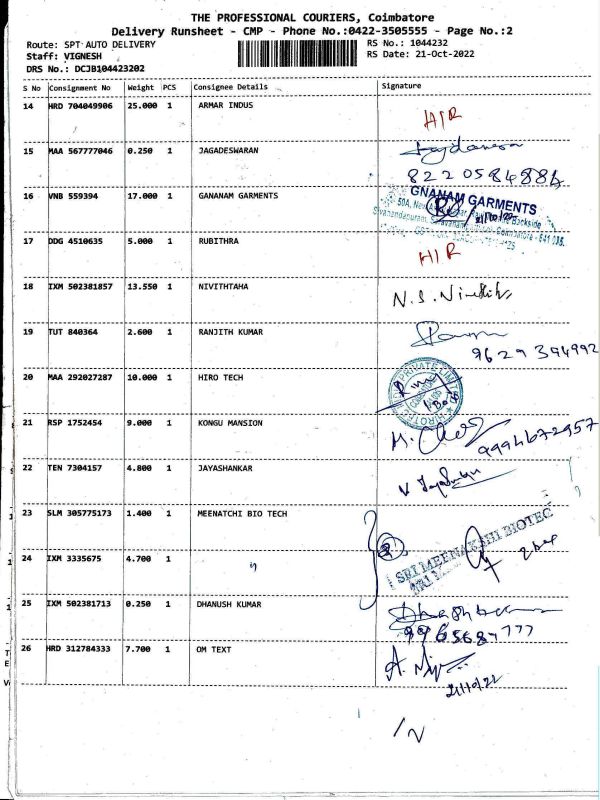 THE PROFESSIONAL COURIERS, Coimbatore
Delivery Runsheet - CMP - Phone No.:0422-3505555 - Page No.:2
Route: SPT AUTO DELIVERY
RS No.: 1044232
Staff: VIGNESH
RS Date: 21-Oct-2022
DRS No.: DCJB104423202
S No Consignment No Weight PCS Consignee Details Signature
14 HRD 704049906 25.000 1 ARMAR INDUS
H/R
15 MAA 567777046 0.250 1 JAGADESWARAN
8220584884
16 VNB 559394 17.000 1 GANANAM GARMENTS
GNANAM GARMENTS
17 DDG 4510635 5.000 1 RUBITHRA
H/R
18 IXM 502381857 13.550 1 NIVITHTAHA
19 TUT 840364 2.600 1 RANJITH KUMAR
9629394992
20 MAA 292027287 10.000 1 HIRO TECH
21 RSP 1752454 9.000 1 KONGU MANSION
9994672957
22 TEN 7304157 4.800 1 JAYASHANKAR
23 SLM 305775173 1.400 1 MEENATCHI BIO TECH
2
SRI MEENAKSHI BIOTEC
24 IXM 3335675 4.700 1
25 IXM 502381713 0.250 1 DHANUSH KUMAR
26 HRD 312784333 7.700 1 OM TEXT
21/10/22